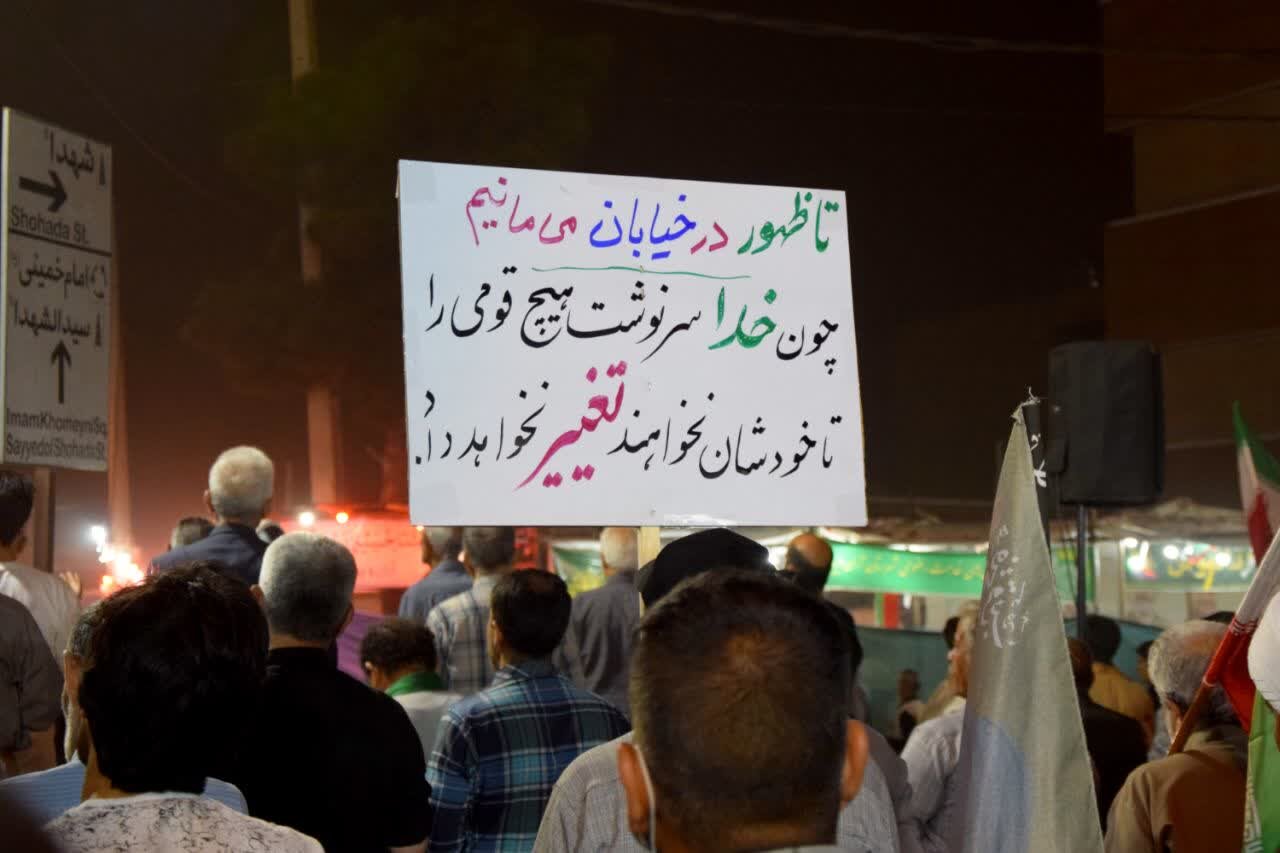 تا ظهور در خیابان می مانیم
چون خدا سرنوشت هیچ قومی را
تا خودشان نخواهند تغییر نخواهد داد.
شهدا
Shohada St.
امام خمینی
سیدالشهدا
ImamKhomeyniSq.
SayyedolShohadaSt.